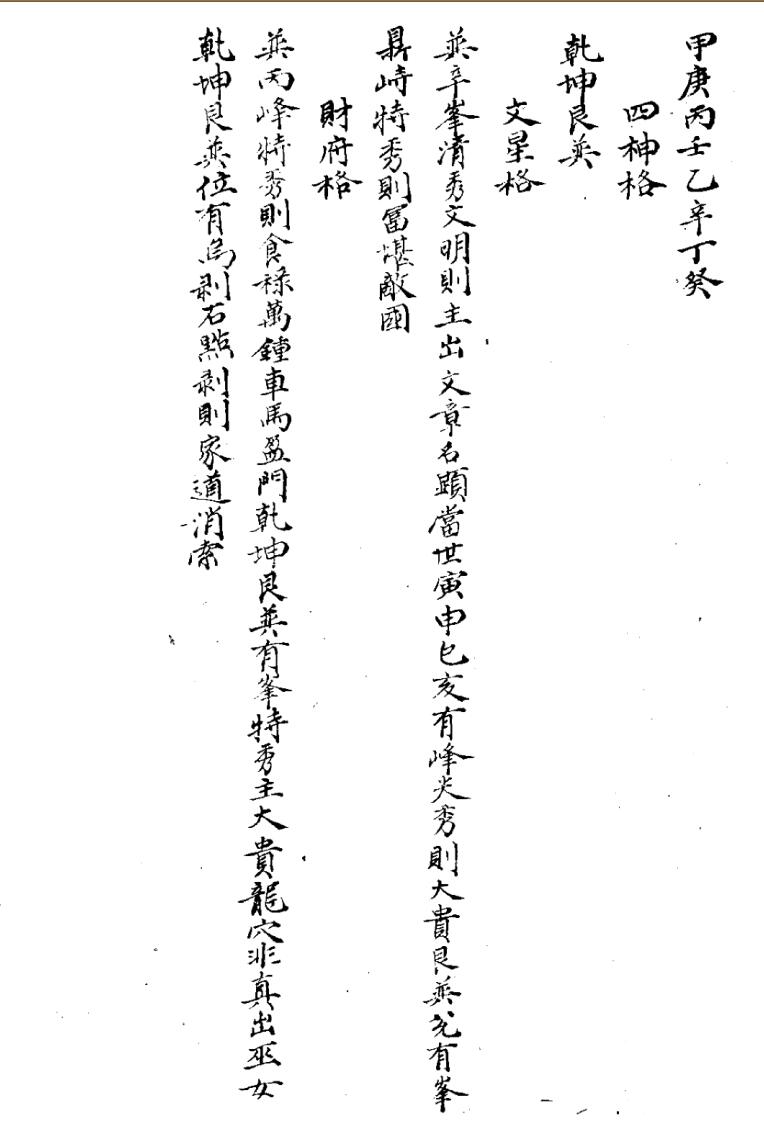 甲庚丙壬乙辛丁癸
四神格
乾坤艮巽
文星格
巽辛峯清秀文明則主出文章名顕當世寅申巳亥有峰尖秀則大貴艮巽兌有峯
鼎峙特秀則冨堪敵國
財府格
巽丙峰特秀則食祿萬鍾車馬盈門乾坤艮巽有峯特秀主大貴龍穴非真出巫女
乾坤艮巽位有為剥石點剥則家道消索